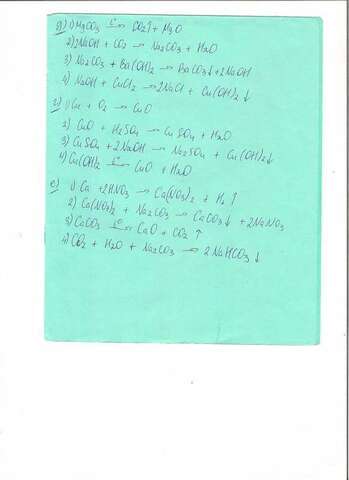 д) 1) MgCO3 t° → CO2↑ + MgO
2) 2NaOH + CO2 → Na2CO3 + H2O
3) Na2CO3 + Ba(OH)2 → BaCO3↓ + 2NaOH
4) NaOH + CuCl2 → 2NaCl + Cu(OH)2↓
г) 1) Cu + O2 → CuO
2) CuO + H2SO4 → CuSO4 + H2O
3) CuSO4 + 2NaOH → Na2SO4 + Cu(OH)2↓
4) Cu(OH)2 t° → CuO + H2O
е) 1) Ca + 2HNO3 → Ca(NO3)2 + H2↑
2) Ca(NO3)2 + Na2CO3 → CaCO3↓ + 2NaNO3
3) CaCO3 t° → CaO + CO2↑
4) CO2 + H2O + Na2CO3 → 2NaHCO3↓